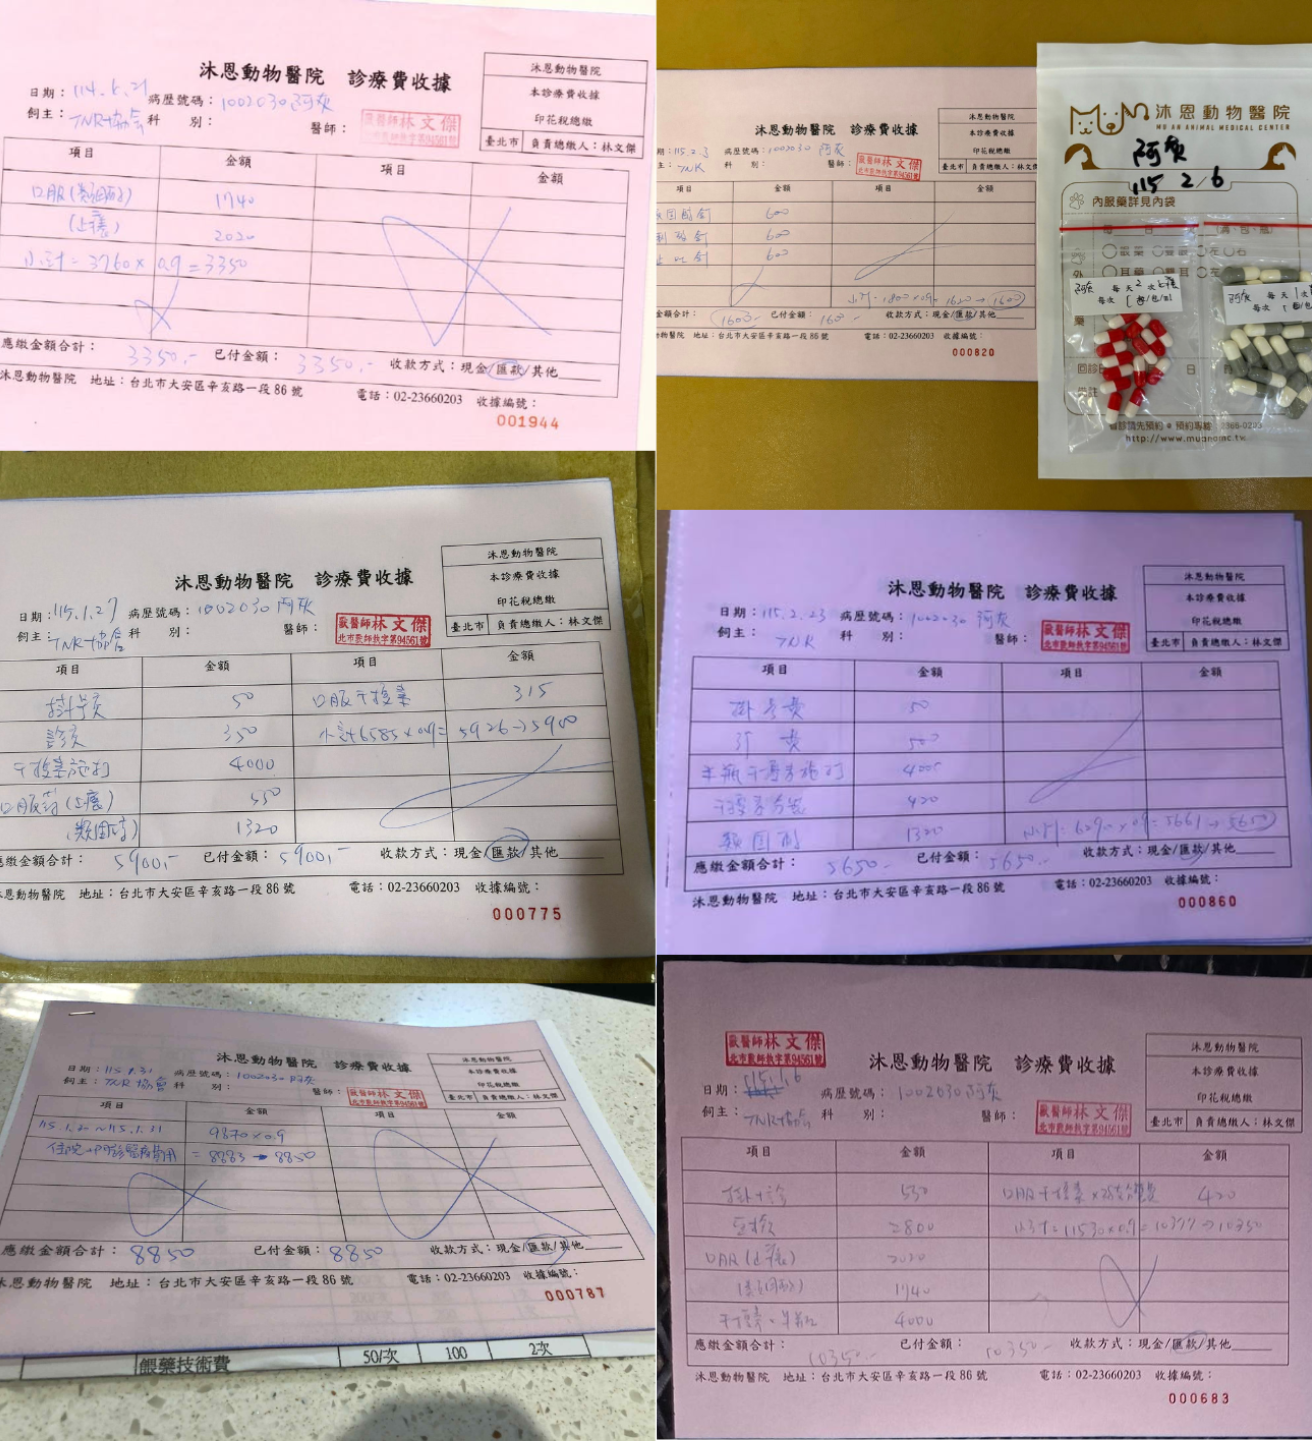 沐恩動物醫院 診療費收據
沐恩動物醫院
本診療費收據
印花稅總繳
臺北市 負責總繳人：林文傑
日期：114. 病歷號碼：1002030 阿灰
飼主：TNR協會 科 別： 醫師： 獸醫師林文傑
項目 金額 項目 金額
口服(類固醇) 1740
(止癢) 2020
小計=3760×0.9=3350
應繳金額合計： 3350.- 已付金額： 3350.- 收款方式：現金/匯款/其他
沐恩動物醫院 地址：台北市大安區辛亥路一段86號 電話：02-23660203 收據編號：
001944
沐恩動物醫院 診療費收據
沐恩動物醫院
本診療費收據
印花稅總繳
臺北市 負責總繳人：林文傑
期：115.2.3 病歷號碼：1002030 阿灰
主：TNR 科 別： 醫師： 獸醫師林文傑
項目 金額 項目 金額
固醇針 600
針 600
止吐針 600
小計=1800×0.9=1620→1600
金額合計： 1600.- 已付金額： 1600.- 收款方式：現金/匯款/其他
動物醫院 地址：台北市大安區辛亥路一段86號 電話：02-23660203 收據編號：
000820
沐恩動物醫院
MU AN ANIMAL MEDICAL CENTER
阿灰
115 2/6
內服藥詳見內袋
阿灰 每天2次止癢
每次1
阿灰 每天1次
每次1
看診請先預約 預約專線 2366-0203
http://www.muanamc.tw
沐恩動物醫院 診療費收據
沐恩動物醫院
本診療費收據
印花稅總繳
臺北市 負責總繳人：林文傑
日期：115.1.27 病歷號碼：1002030 阿灰
飼主：TNR協會 科 別： 醫師： 獸醫師林文傑
北市獸師執字第94561號
項目 金額 項目 金額
掛號費 50 口服干擾素 315
診費 350 小計6585×0.9= 5926→5900
干擾素施打 4000
口服藥(止癢) 550
(類固醇) 1320
應繳金額合計： 5900.- 已付金額： 5900.- 收款方式：現金/匯款/其他
沐恩動物醫院 地址：台北市大安區辛亥路一段86號 電話：02-23660203 收據編號：
000775
沐恩動物醫院 診療費收據
沐恩動物醫院
本診療費收據
印花稅總繳
臺北市 負責總繳人：林文傑
日期：115.2.23 病歷號碼：1002030 阿灰
飼主：TNR 科 別： 醫師： 獸醫師林文傑
北市獸師執字第94561號
項目 金額 項目 金額
掛號費 50
診費 500
干擾素施打 4000
干擾素分裝 420
類固醇 1320 小計=6290×0.9=5661→5650
應繳金額合計： 5650.- 已付金額： 5650.- 收款方式：現金/匯款/其他
沐恩動物醫院 地址：台北市大安區辛亥路一段86號 電話：02-23660203 收據編號：
000860
沐恩動物醫院 診療費收據
沐恩動物醫院
本診療費收據
印花稅總繳
臺北市 負責總繳人：林文傑
日期：115.1.31 病歷號碼：1002030 阿灰
飼主：TNR協會 科 別： 醫師： 獸醫師林文傑
北市獸師執字第94561號
項目 金額 項目 金額
115.1.2 ~115.1.31 9870×0.9
住院+門診醫療費用 =8883→8850
應繳金額合計： 8850 已付金額： 8850 收款方式：現金/匯款/其他
沐恩動物醫院 地址：台北市大安區辛亥路一段86號 電話：02-23660203 收據編號：
000787
餵藥技術費 50/次 100 2次
獸醫師林文傑
北市獸師執字第94561號
沐恩動物醫院 診療費收據
沐恩動物醫院
本診療費收據
印花稅總繳
臺北市 負責總繳人：林文傑
日期：115.1.6 病歷號碼：1002030 阿灰
飼主：TNR協會 科 別： 醫師： 獸醫師林文傑
北市獸師執字第94561號
項目 金額 項目 金額
掛+診 550 口服干擾素 420
血檢 2800 小計=11530×0.9=10377→10350
口服(止癢) 2020
(類固醇) 1740
干擾素 4000
應繳金額合計： 10350.- 已付金額： 10350.- 收款方式：現金/匯款/其他
沐恩動物醫院 地址：台北市大安區辛亥路一段86號 電話：02-23660203 收據編號：
000683